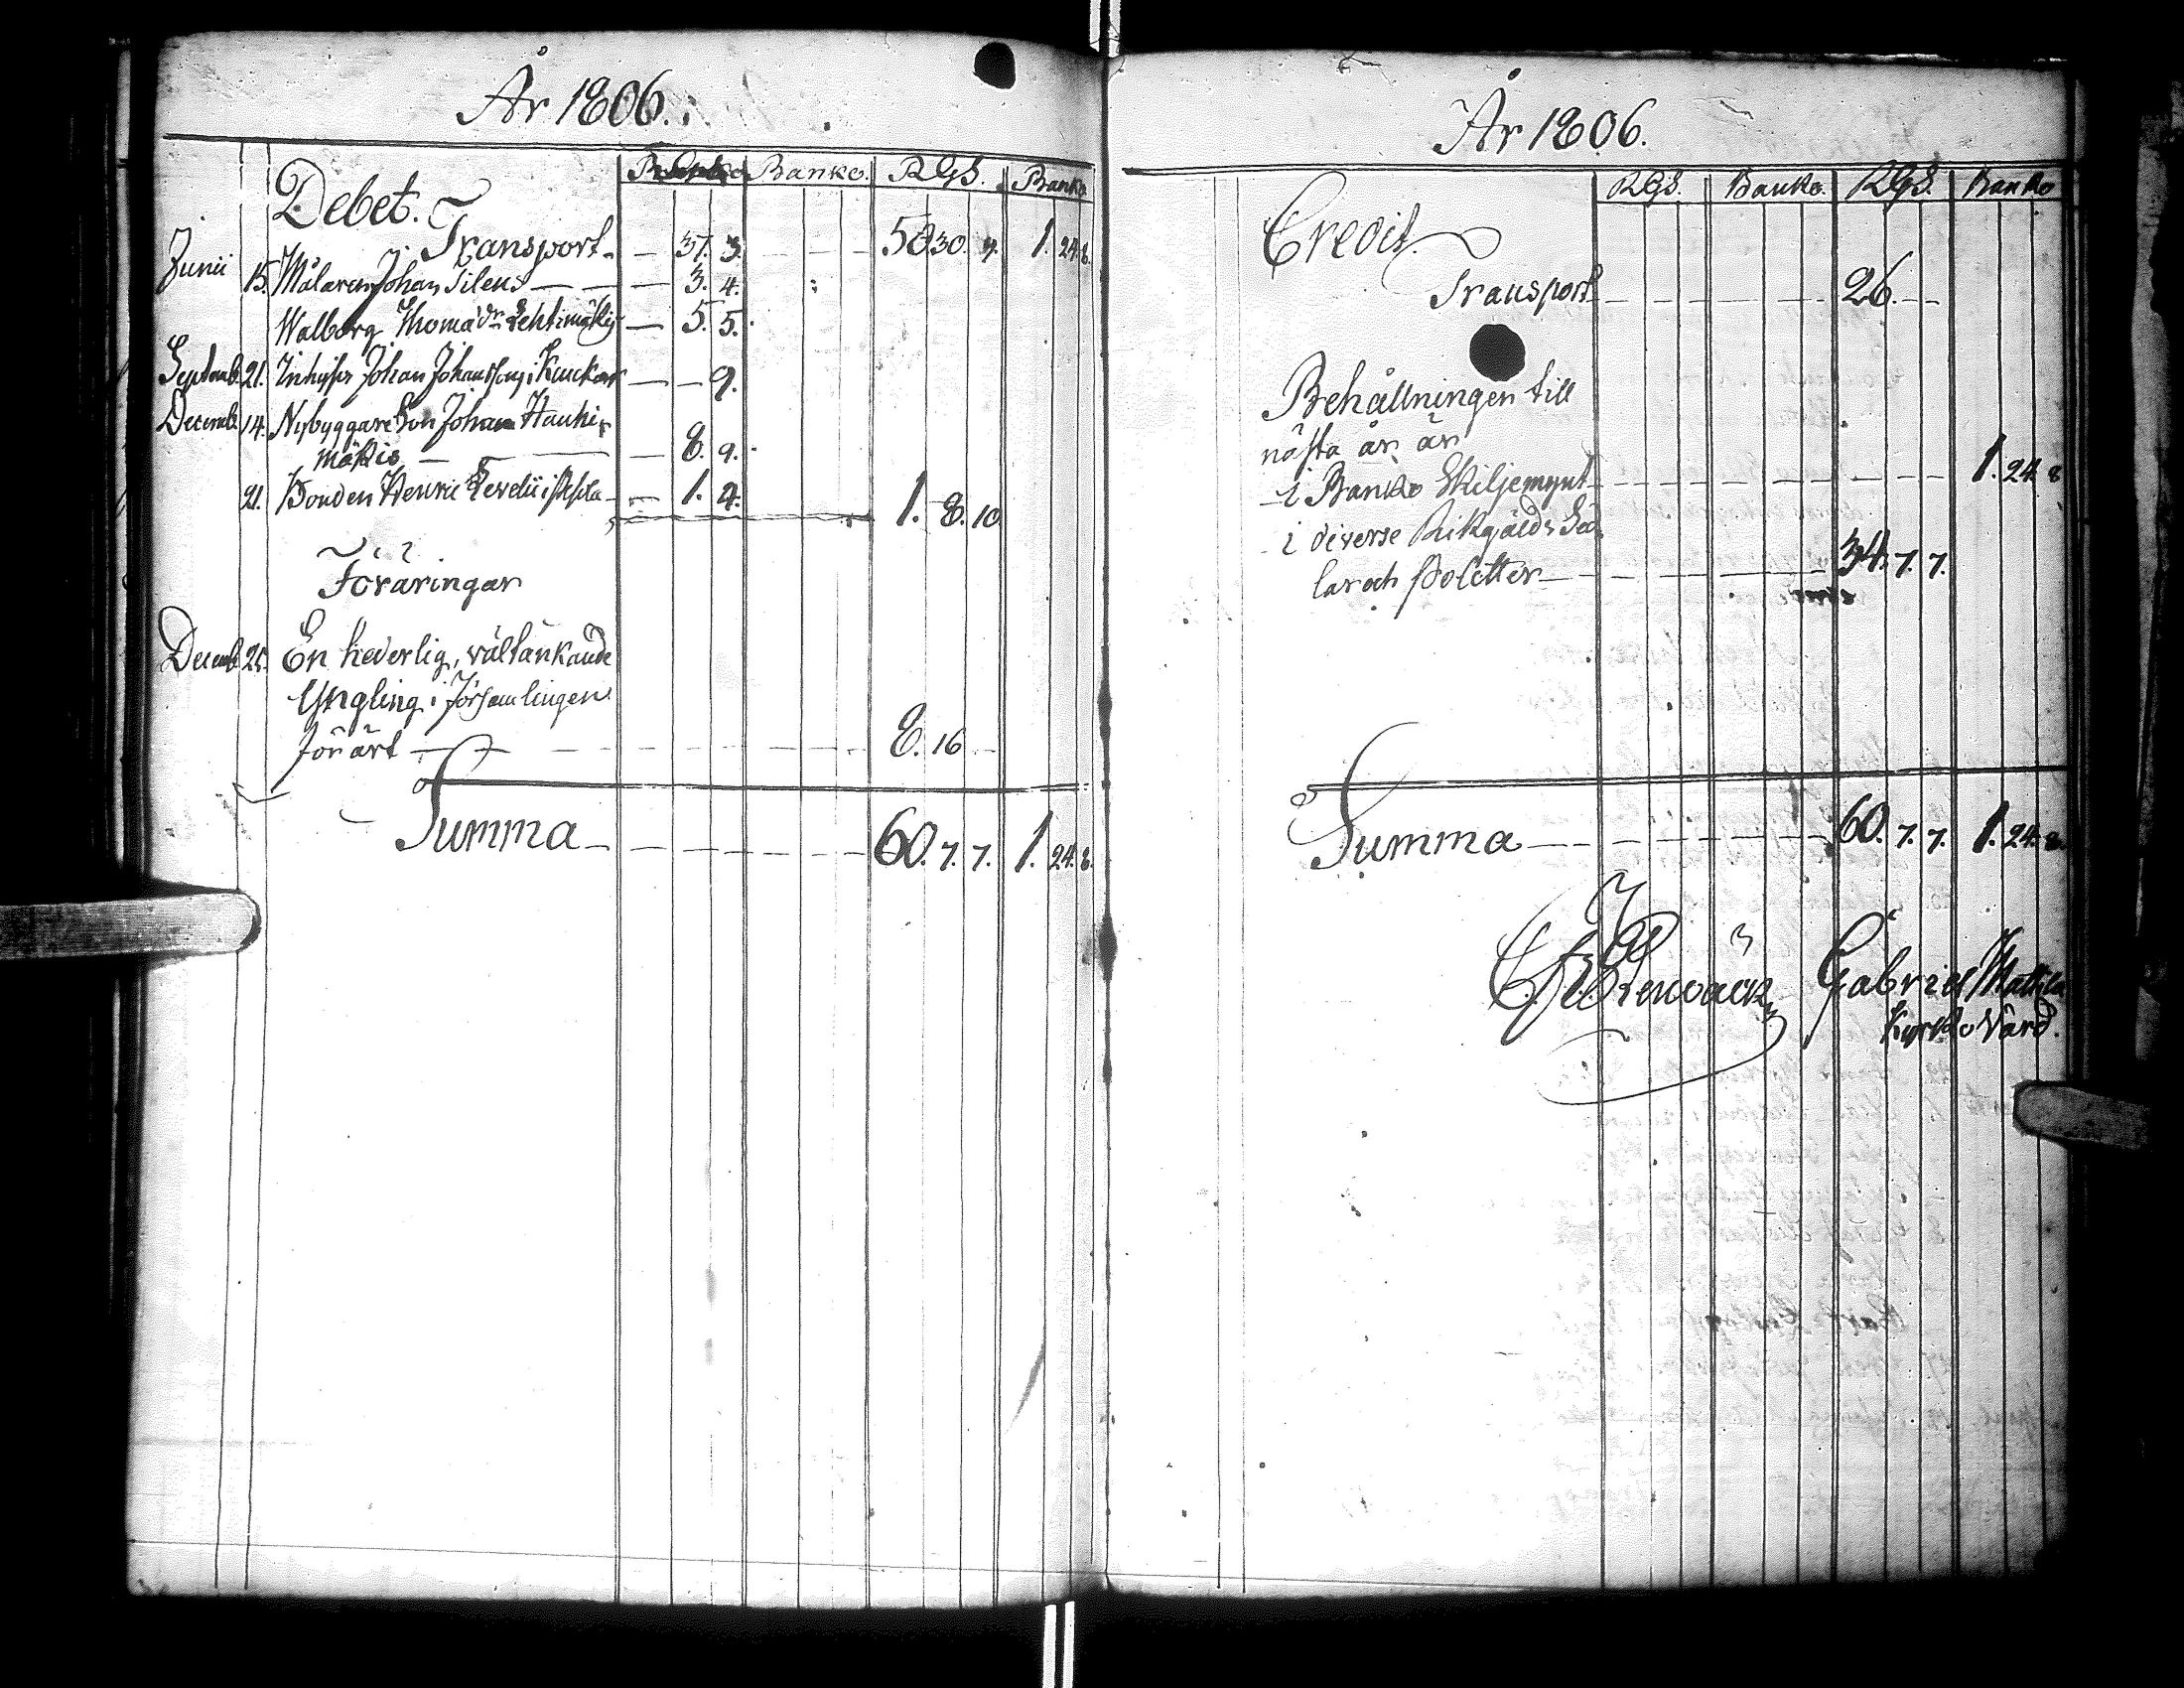 År 1806.
RGS. Banko. RGS. Banko
Debet.
Transport. 37. 3. 50 30. 9. 1. 24. 8.
Junii 15. Målaren Johan Silens — 3. 4.
Walborg Thomæ dr Lehtimäkis — 5. 5.
Septemb. 21. Inhyses Johan Johansson i — — 9.
Decemb. 14. Nybyggare Son Johan Hauki-
mäkis — 8. 9.
21. Bonden Henric — 1. 4. 1. 8. 10
Föräringar
Decemb. 25. En hederlig, vältänkande
Yngling i församlingen
förärt — 8. 16
Summa — 60. 7. 7. 1. 24. 8.
År 1806.
RGS. Banko. RGS. Banko
Credit
Transport — 26. —
Behållningen till
nästa år är
i Banko Skiljemynt — 1. 24. 8
i diverse Rikgälds Sed
lar och Poletter — 34. 7. 7.
Summa — 60. 7. 7. 1. 24. 8.
Gabriel Mattila
Kyrko Värd.